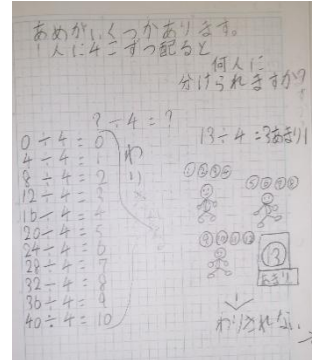 あめがいくつかあります。
1人に4こずつ配ると
何人に
分けられますか?
?÷4=?
0÷4=0
4÷4=1
8÷4=2
12÷4=3
16÷4=4
20÷4=5
24÷4=6
28÷4=7
32÷4=8
36÷4=9
40÷4=10
わり
13÷4=3あまり1
①②③④
⑤⑥⑦⑧
⑨⑩⑪⑫
⑬
あまり
わりきれない